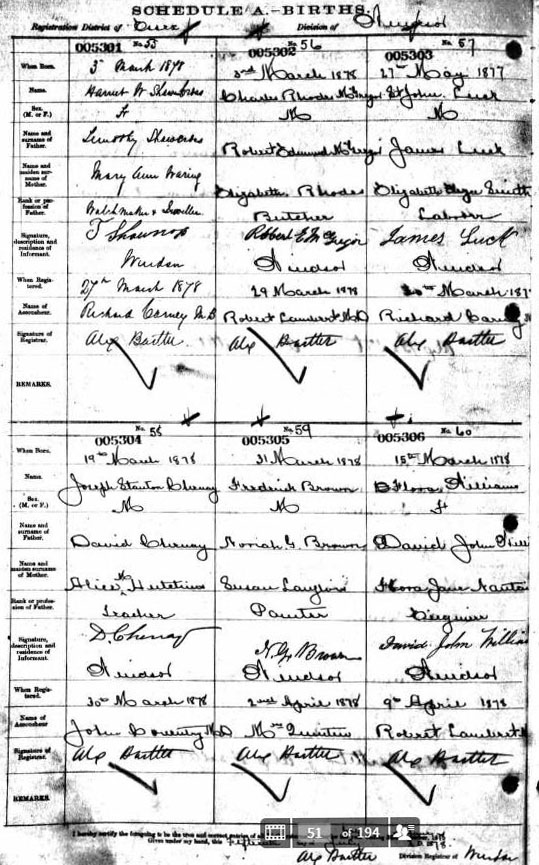 SCHEDULE A.—BIRTHS.
Registration District of Essex Division of Windsor
005301 No. 55 005302 No. 56 005303 No. 57
When Born. 3rd March 1878 3rd March 1878 27th May 1877
Name. Harriet W Charles Rhodes McGregor St John Luck
Sex. (M. or F.) F M M
Name and surname of Father. Timothy Robert Edmund McGregor James Luck
Name and maiden surname of Mother. Mary Ann Waring Elizabeth Rhodes Elizabeth Smith
Rank or profession of Father. Watch maker & Jeweller Butcher Laborer
Signature, description and residence of Informant. T Robert E McGregor James Luck
Windsor Windsor Windsor
When Registered. 27th March 1878 29 March 1878 30th March 187
Name of Accoucheur. Richard Carney M.D Robert Lambert M.D Richard Carney
Signature of Registrar. Alex Bartlet Alex Bartlet Alex Bartlet
REMARKS.
005304 No. 58 005305 No. 59 005306 No. 60
When Born. 19th March 1878 21 March 1878 15th March 1878
Name. Joseph Stanton Chenay Fredrick Brown Flora Williams
Sex. (M. or F.) M M F
Name and surname of Father. David Chenay Norah G. Brown David John Willi
Name and maiden surname of Mother. Alice M Hutchins Susan Flora Jane
Rank or profession of Father. Teacher Painter
Signature, description and residence of Informant. D. Chenay N. G. Brown David John Willia
Windsor Windsor Windsor
When Registered. 30th March 1878 2nd April 1878 9th April 1878
Name of Accoucheur John Coventry M.D Mrs Robert Lambert M
Signature of Registrar. Alex Bartlet Alex Bartlet Alex Bartlet
REMARKS.
51 of 194
I hereby certify the foregoing to be the true and correct entries of all
Given under my hand, this fifteenth day of A.D. 1878.
Alex Bartlet Division Registrar of Windsor